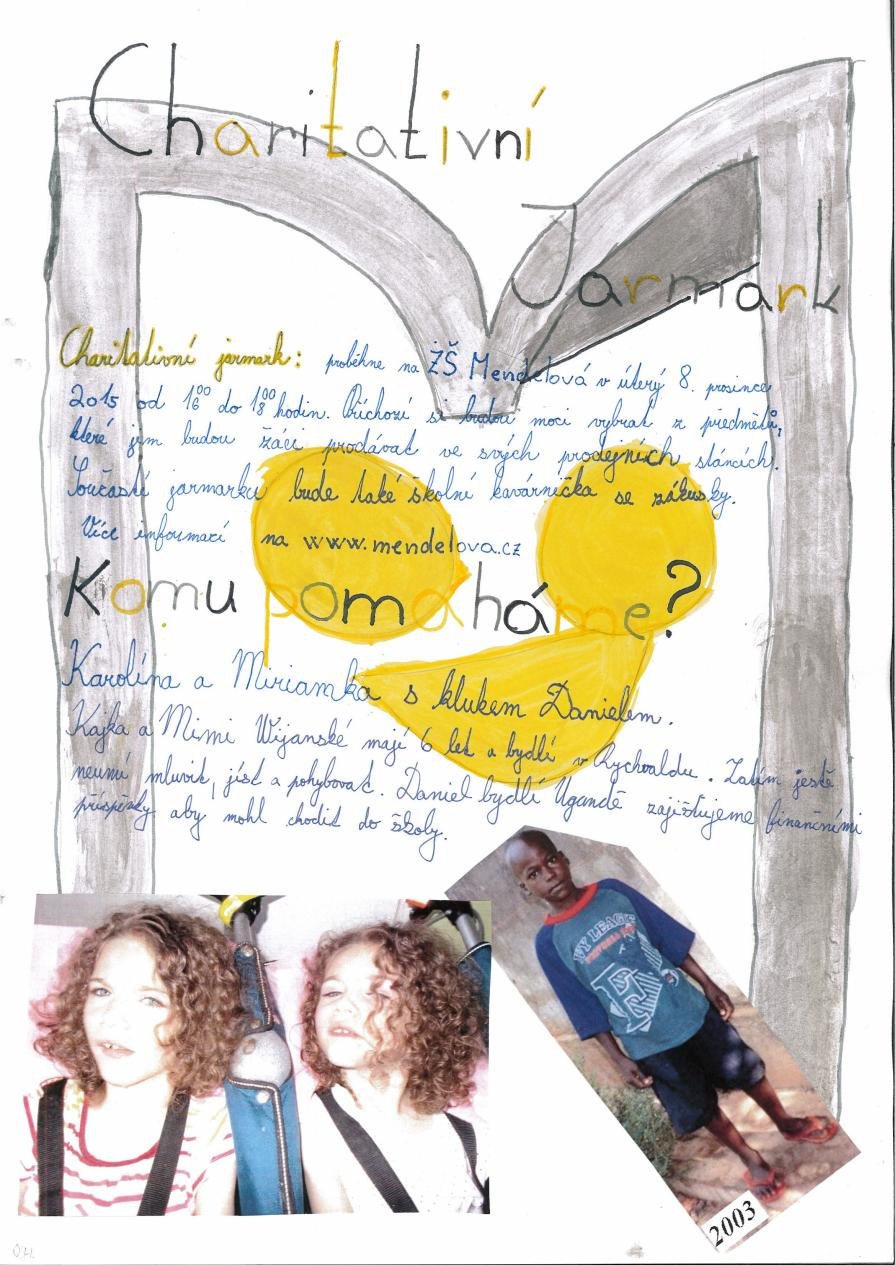 Charitativní
Jarmark
Charitativní jarmark: proběhne na ZŠ Mendelova v úterý 8. prosince
2015 od 16⁰⁰ do 18⁰⁰ hodin. Příchozí si budou moci vybrat z předmětů,
které jim budou žáci prodávat ve svých prodejních stáncích.
Součástí jarmarku bude také školní kavárnička se zákusky.
Více informací na www.mendelova.cz
Komu pomaháme?
Karolína a Miriamka s klukem Danielem.
Kajka a Mimi Wijanské mají 6 let a bydlí v Rychvaldu. Zatím ještě
neumí mluvit, jíst a pohybovat. Daniel bydlí Ugandě zajišťujeme finančními
příspěvky aby mohl chodit do školy.
IVY LEAGUE
2003